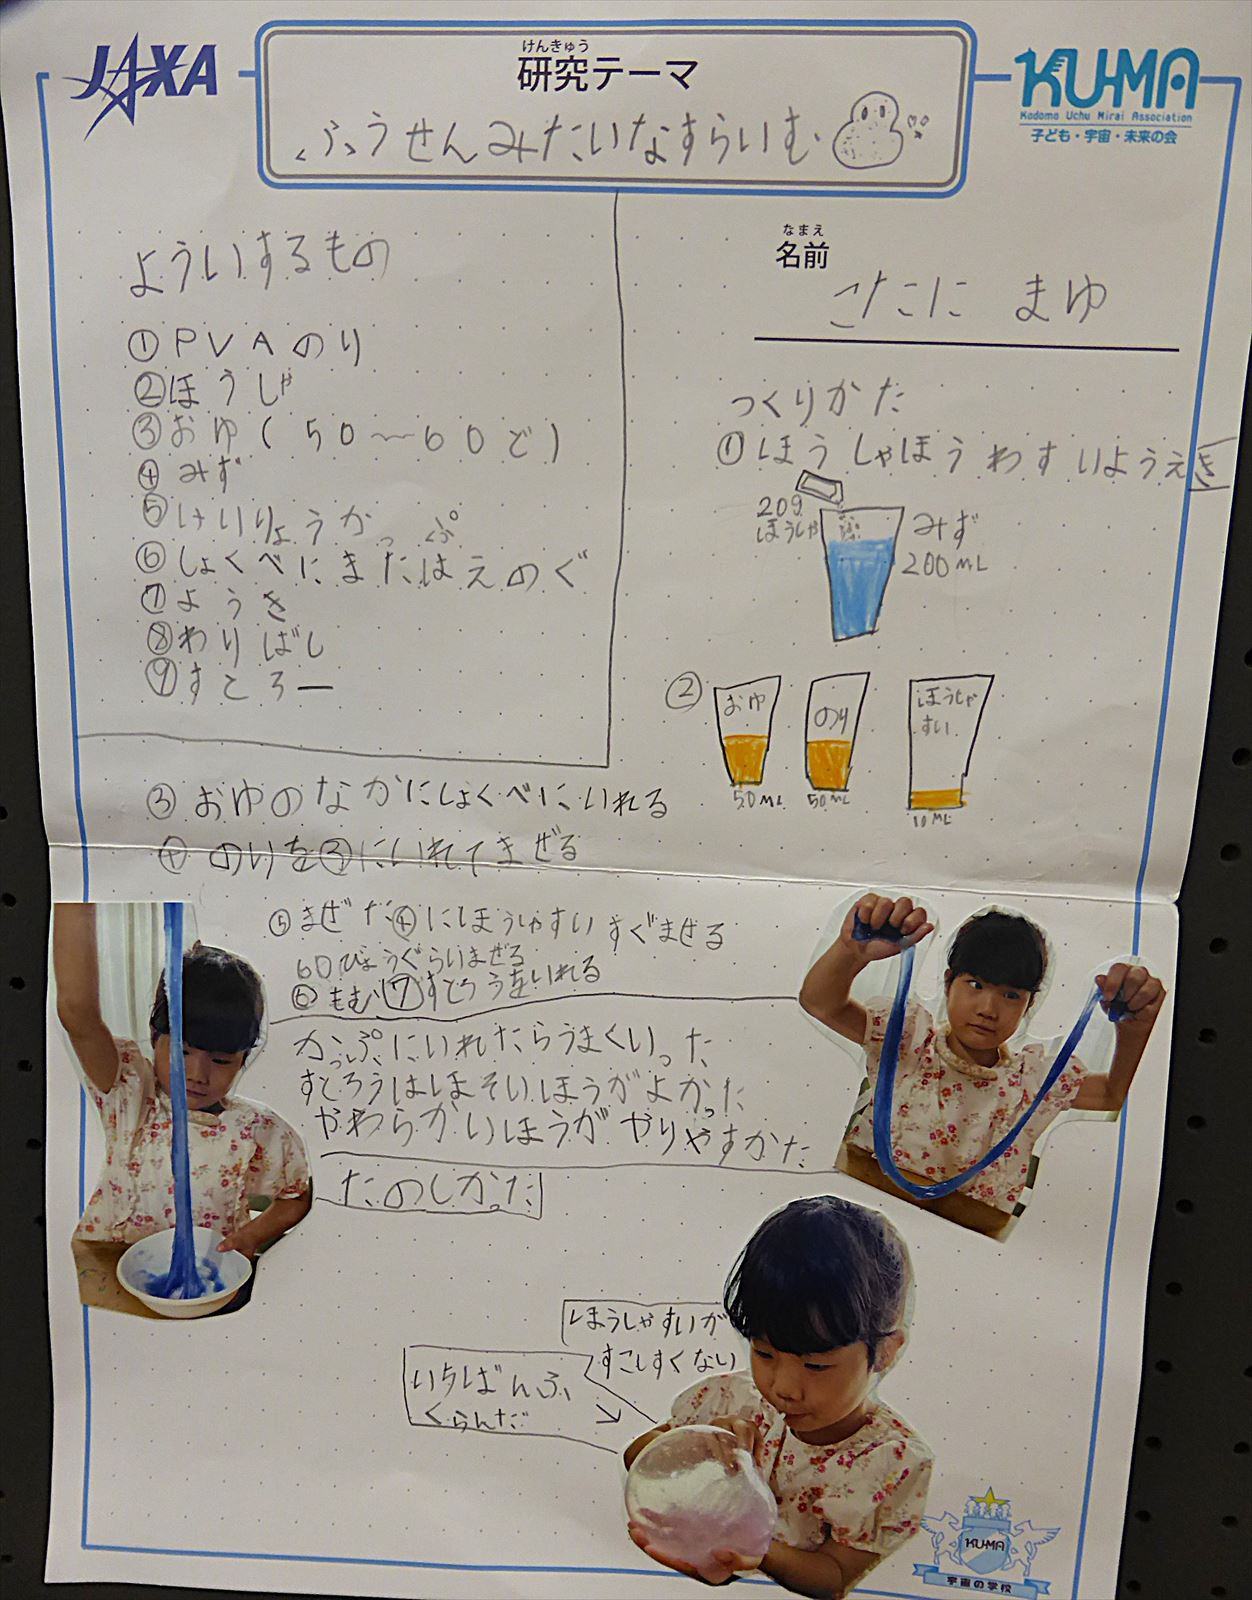 JAXA
けんきゅう
研究テーマ
ふうせんみたいなすらいむ
KU-MA
Kodomo Uchu Mirai Association
子ども・宇宙・未来の会
なまえ
名前
こたに まゆ
よういするもの
①PVAのり
②ほうしゃ
③おゆ(50〜60ど)
④みず
⑤けいりょうかっぷ
⑥しょくべにまたはえのぐ
⑦ようき
⑧わりばし
⑨すとろー
つくりかた
①ほうしゃほうわすいようえき
20g
ほうしゃ
みず
200mL
②
おゆ
50mL
のり
50mL
ほうしゃ
すい
10mL
③おゆのなかにしょくべにいれる
④のりを③にいれてまぜる
⑤まぜた④にほうしゃすいすぐまぜる
60びょうぐらいまぜる
⑥もむ⑦すとろうをいれる
かっぷにいれたらうまくいった
すとろうはほそいほうがよかった
やわらかいほうがやりやすかた
たのしかった
ほうしゃすいが
すこしすくない
いちばんふ
くらんだ
KU-MA
宇宙の学校